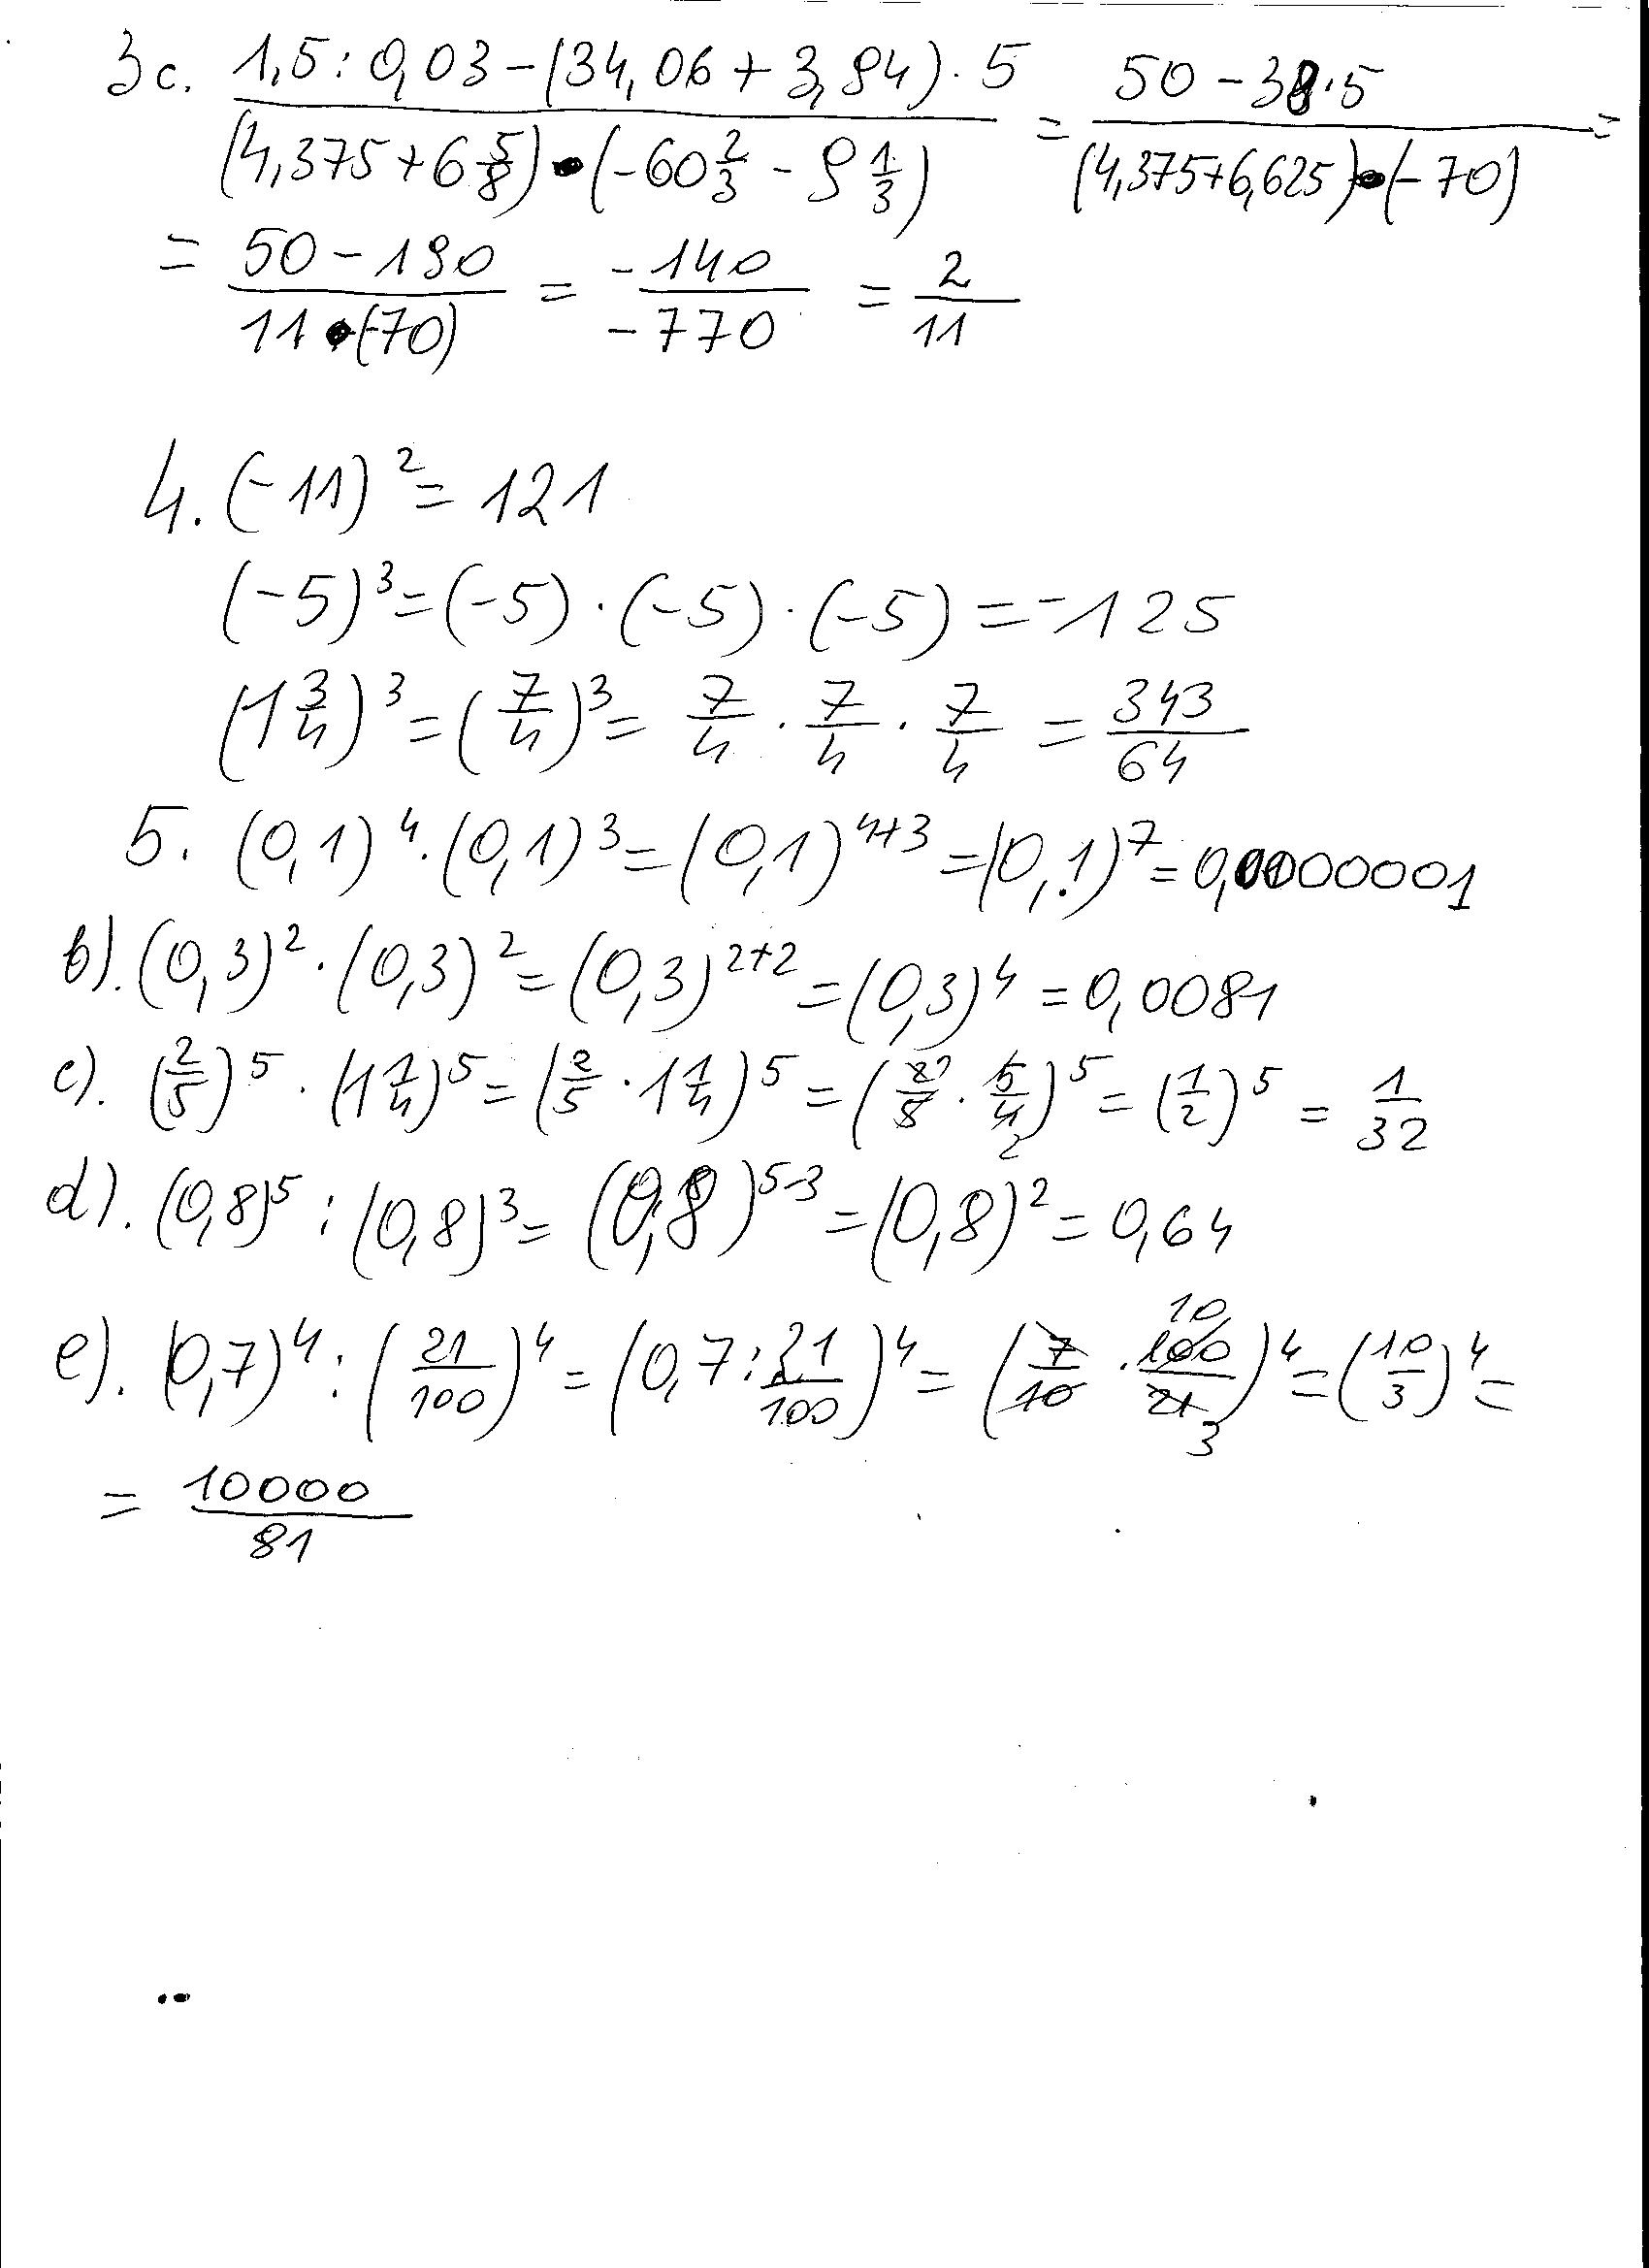 3c. (1,5 : 0,03 − (34,06 + 3,94) · 5) / ((4,375 + 6 5/8) · (−60 2/3 − 9 1/3)) = (50 − 38 · 5) / ((4,375 + 6,625) · (−70)) =
= (50 − 190) / (11 · (−70)) = −140 / −770 = 2/11
4. (−11)² = 121
(−5)³ = (−5) · (−5) · (−5) = −125
(1 3/4)³ = (7/4)³ = 7/4 · 7/4 · 7/4 = 343/64
5. (0,1)⁴ · (0,1)³ = (0,1)⁴⁺³ = (0,1)⁷ = 0,0000001
b). (0,3)² · (0,3)² = (0,3)²⁺² = (0,3)⁴ = 0,0081
c). (2/5)⁵ · (1 1/4)⁵ = (2/5 · 1 1/4)⁵ = (2/5 · 5/4 2)⁵ = (1/2)⁵ = 1/32
d). (0,8)⁵ : (0,8)³ = (0,8)⁵⁻³ = (0,8)² = 0,64
e). (0,7)⁴ : (21/100)⁴ = (0,7 : 21/100)⁴ = (7/10 · 10 100/21 3)⁴ = (10/3)⁴ =
= 10000/81